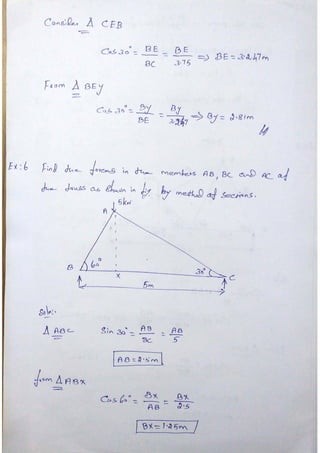 Consider Δ CEB
Cos 30° = BE/BC = BE/3.75 => BE = 3.247m
From Δ BEy
Cos 30° = By/BE = By/3.247 => By = 2.81m
Ex:6 Find the forces in the members AB, BC and AC of
the truss as shown in fig by method of sections.
5kN
A
B 60° x 30° C
5m
Soln:-
Δ ABC Sin 30° = AB/BC = AB/5
AB = 2.5m
from Δ ABX
Cos 60° = BX/AB = BX/2.5
BX = 1.25m